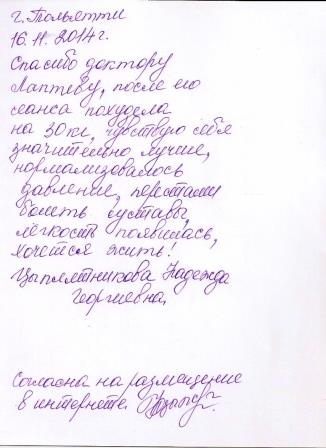 г. Тольятти
16.11.2014г.
Спасибо доктору
Лаптеву, после его
сеанса похудела
на 30кг, чувствую себя
значительно лучше,
нормализовалось
давление, перестали
болеть суставы,
лёгкость появилась,
хочется жить!
Цыплятникова Надежда
Георгиевна,
Согласна на размещение
в интернете.